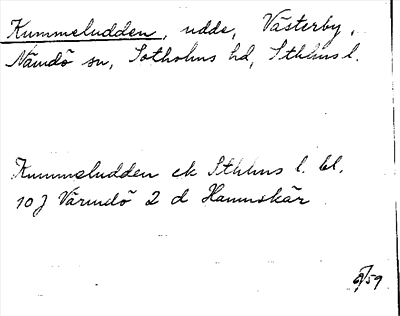 Kummeludden, udde, Västerby,
Nämdö sn, Sotholms hd, Sthlms l.
Kummeludden ek Sthlms l. bl.
10 J Värmdö 2 d Hamnskär
59